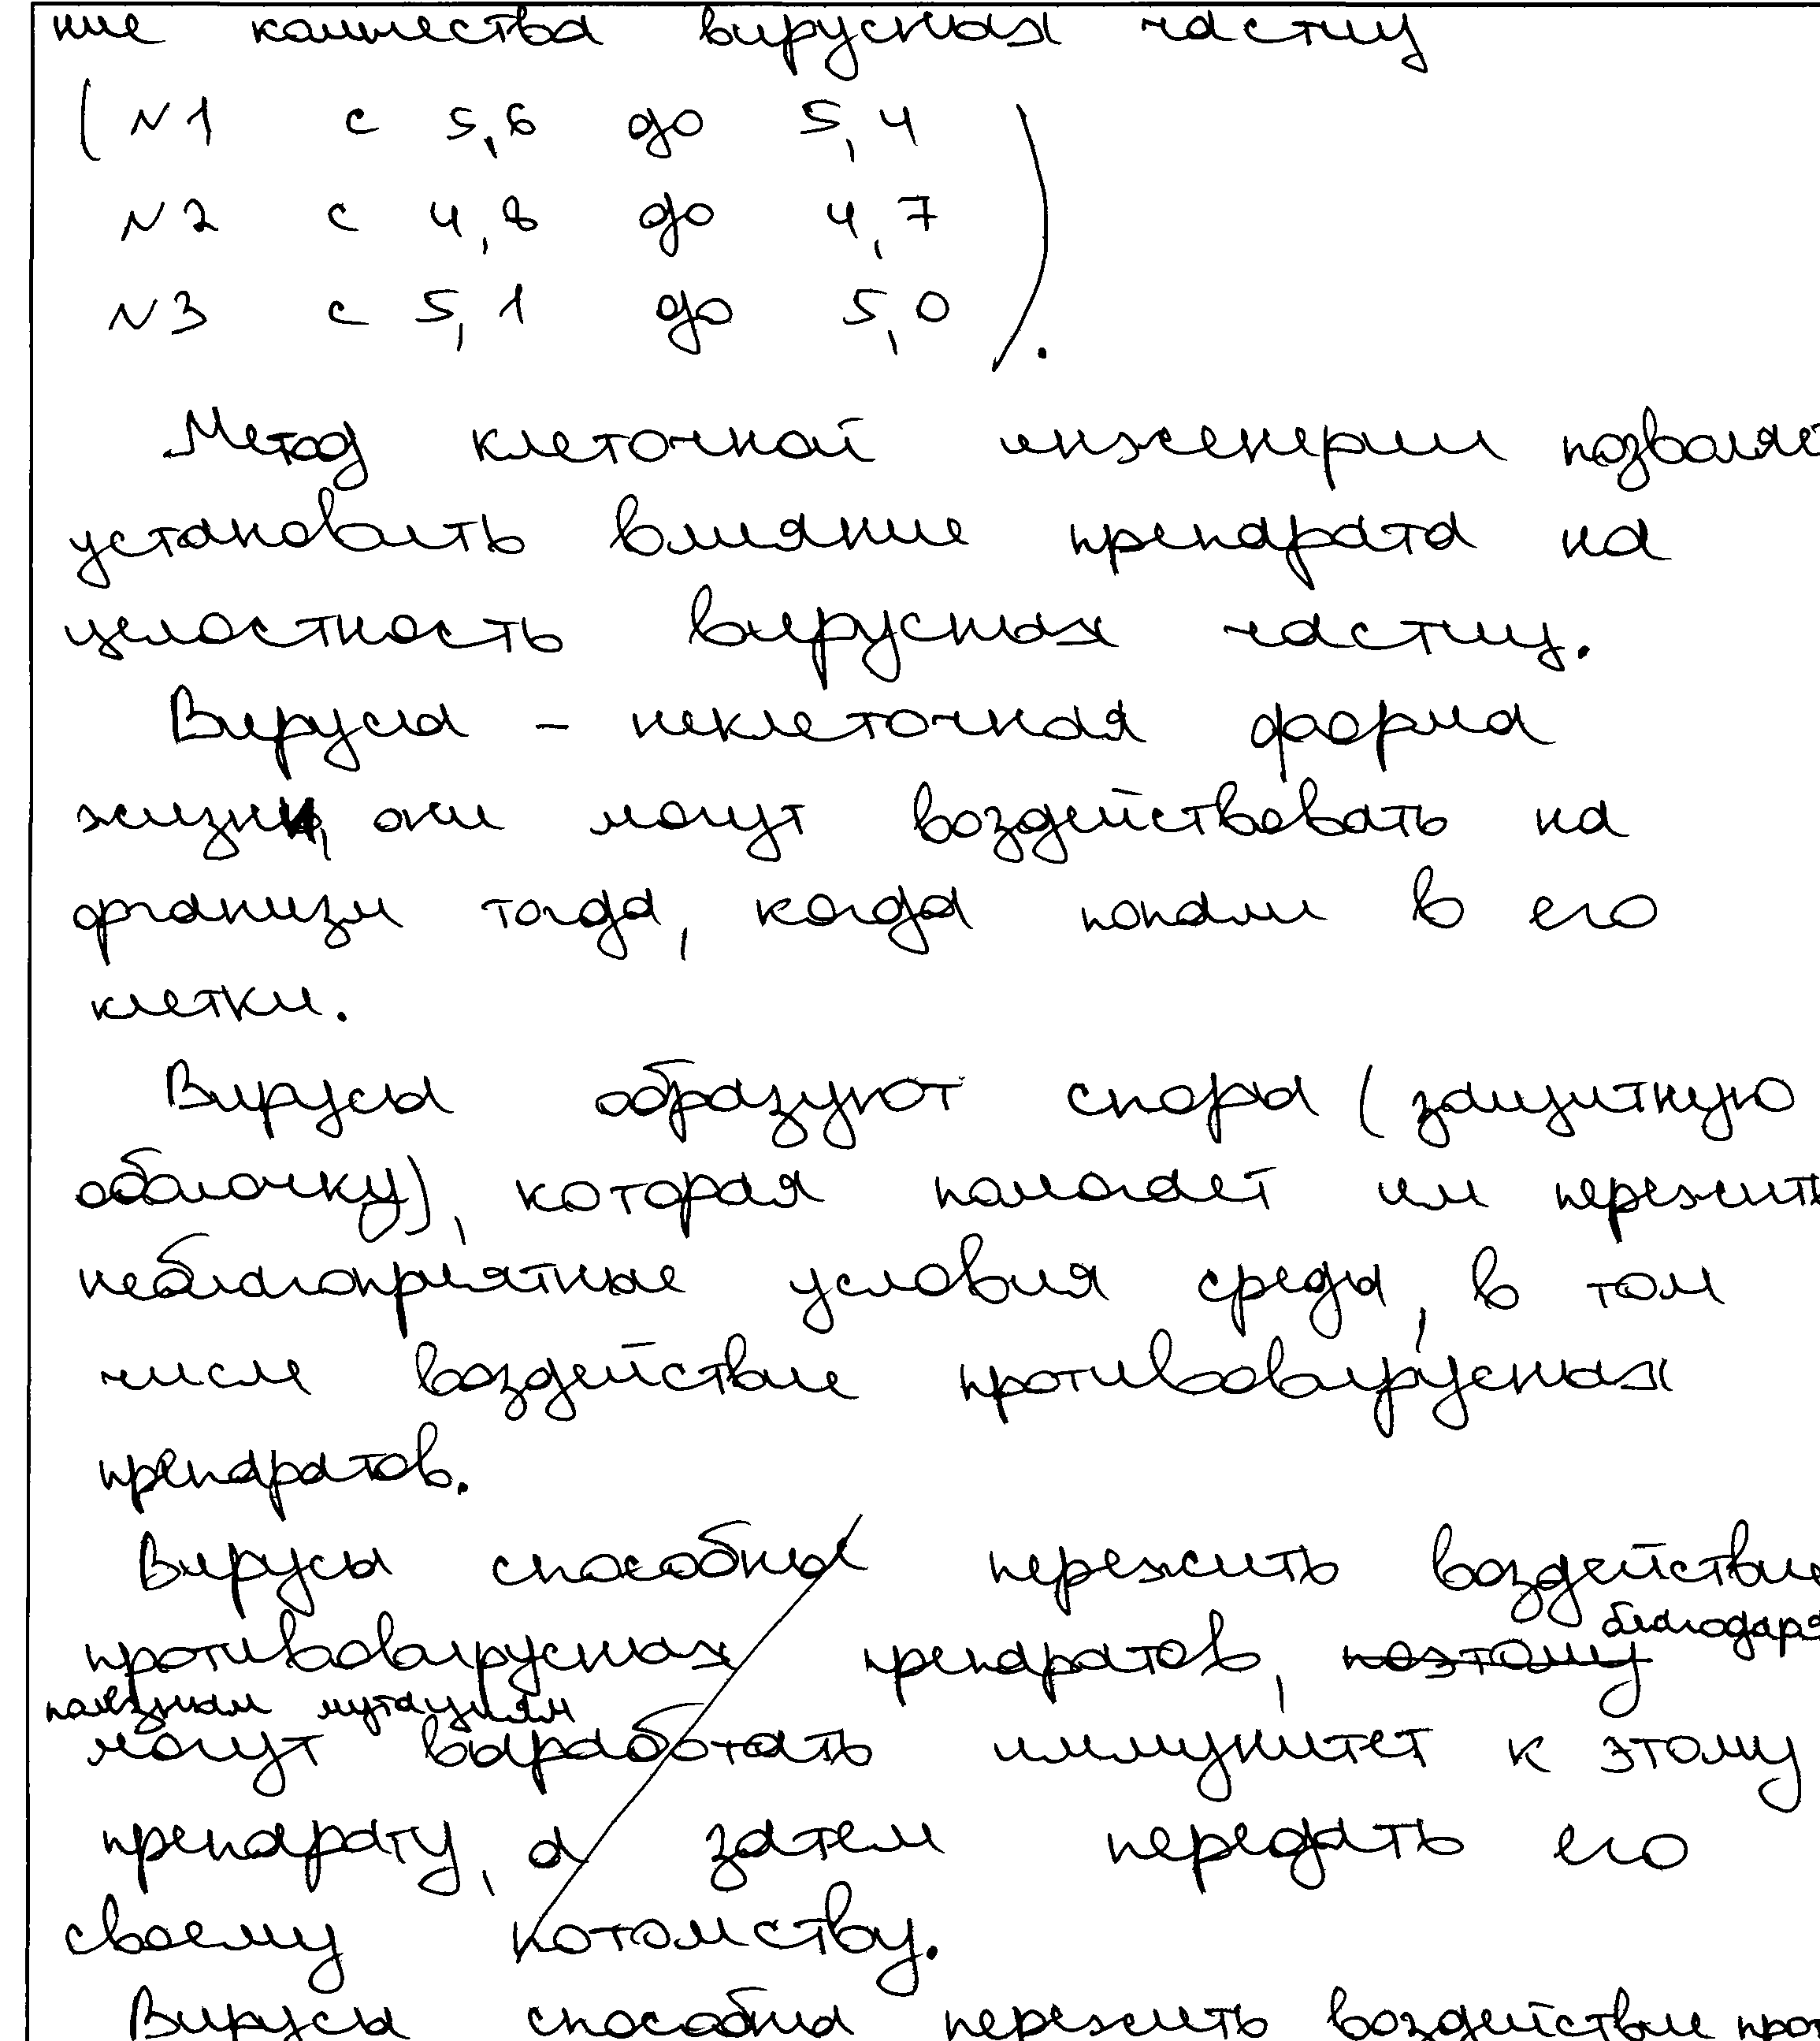 ние количества вирусных частиц
( N1 с 5,6 до 5,4 )
N2 с 4,8 до 4,7
N3 с 5,1 до 5,0 .
Метод клеточной инженерии позволяет
установить влияние препарата на
целостность вирусных частиц.
Вирусы - неклеточная форма
жизни, они могут воздействовать на
организм тогда, когда попали в его
клетки.
Вирусы образуют споры (защитную
оболочку), которая помогает им пережить
неблагоприятные условия среды, в том
числе воздействие противовирусных
препаратов.
Вирусы способны пережить воздействие
противовирусных препаратов, поэтому благодаря
полезным мутациям
могут выработать иммунитет к этому
препарату, а затем передать его
своему потомству.
Вирусы способны пережить воздействие про